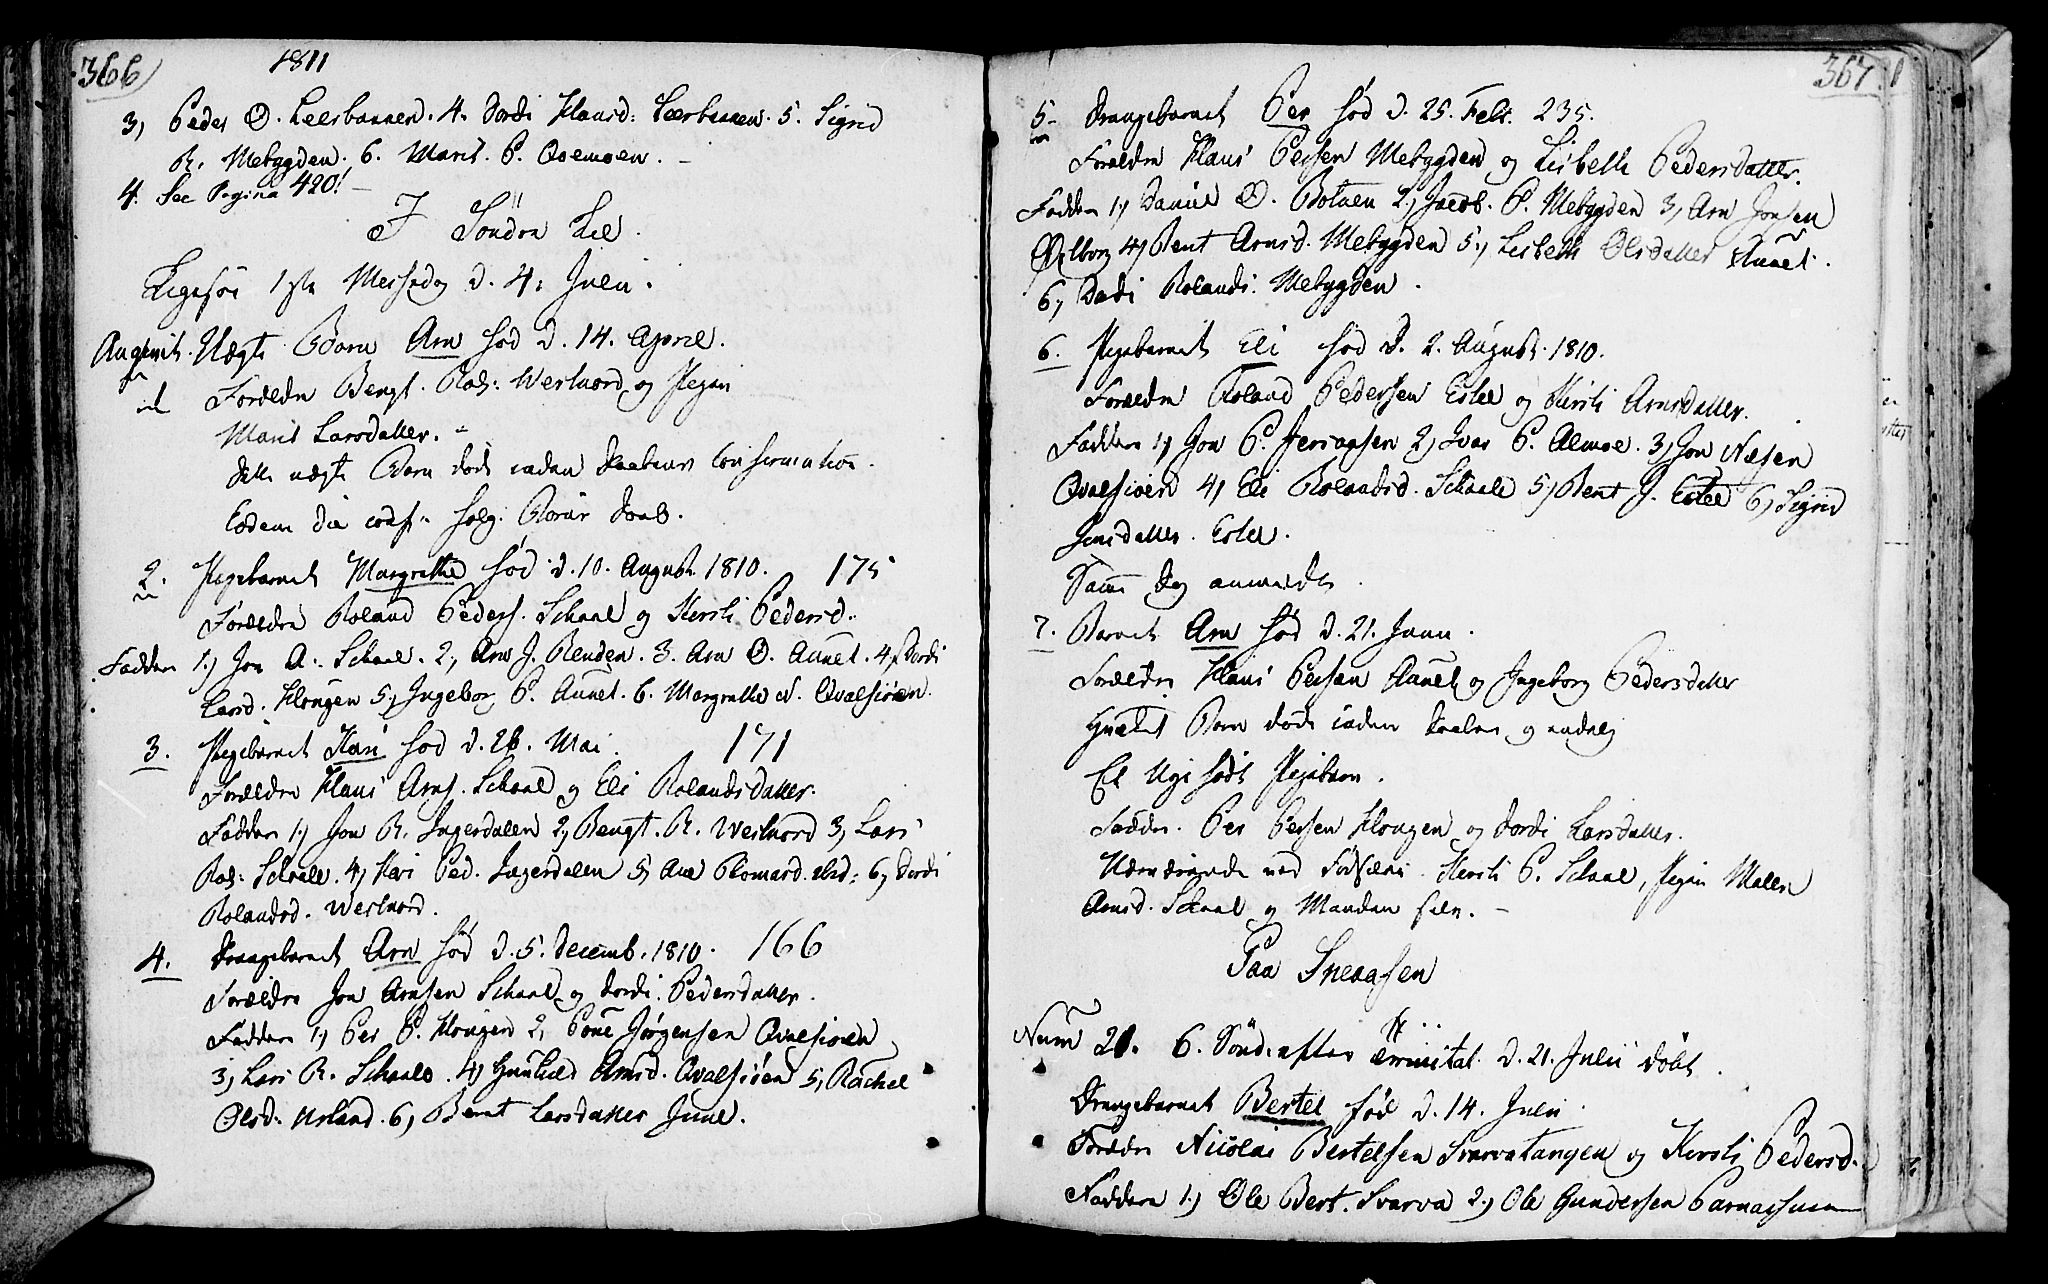 366
1811
3, Peder O. Leerbakken. 4. Dordi Hansd: Leerbakken. 5. Sigrid
R. Mebygden. 6. Marit. P. Qvemoen. –
4. See Pagina 420! –
I Söndre Lie.
Ligesøe 1ste Messedag d. 4. Julii.
Uægte Barn Arn fød d. 14. April.
Foreldre Bengt. Rol: Westnord og Pigen
Marit Larsdatter. –
dette uægte Barn døde inden Daabens Confirmation.
Eodem die
2. Pigebarnet Margrethe fød d. 10. August. 1810. 175
Foreldre Roland Peders. Schaal og Kersti Pedersd.
Faddere 1.) Jon A. Schaal. 2, Arn J. Renden. 3. Arn O. Aunet. 4, Dordi
Larsd. Hougen 5, Ingebor P. Aunet. 6. Margrethe N. Qvelsiøen.
3. Pigebarnet Kari fød d. 26. Mai. 171
Foreldre Hans Arns. Schaal og Eli Rolandsdatter.
Faddere 1.) Jon R. Ingerdalen 2, Bengt. R. Westnord 3, Lars
Rol: Schaale. 4, Kari Ped. Ingerdalen 5, Ane 6, Dordi
Rolandsd. Westnord.
4. Drængebarnet Arn fød d. 5. Decemb. 1810. 166
Foreldre Jon Arnsen Schaal og Dordi. Pedersdatter.
Faddere 1, Per P. Hougen 2, Jørgensen Qvelsiøen
3, Lars R. Schaale. 4, Gunhild Arnsd. Qvalsiöen 5, Rachel
Olsd. 6, Berret Larsdatter June.
367
5. Drængebarnet Per fød d. 25. Febr. 235.
Foreldre Hans Persen Mebygden og Lisbeth Pedersdatter.
Faddere 1.) Daniel O. 2, Jacob. P. Mebygden 3, Arn Jonsen
4, Beret Arnsd. Mebygden 5., Lisbeth Olsdatter Aunet.
6, Dordi Rolands: Mebygden.
6. Pigebarnet Eli fød d. 2. August. 1810.
Foreldre Roland Pedersen Estel og Kirsti Arnsdatter.
Faddere 1, Jon P. 2, Ivar P. Almoe. 3, Jon
Qvalsiöen 4, Eli Rolandsd. Schaale 5, Beret J. Estel 6, Sigrid
Jonsdatter. Estel.
Samme Dag anmeldt.
7. Barnet Arn fød d. 21. Juni.
Foreldre Hans Persen Aunet og Ingeborg Pedersdatter
Barn døde inden Daaben og
Et Pigebarn.
Fadder. Per Persen Hougen og Dordi Larsdatter.
Nærværende ved Fødselen. Kersti P. Schaal, Pigen Malene
Arnsd. Schaal og Manden selv. –
Paa Sneaasen
Num 21. 6. Sönd. after Trinitat. d. 21. Julii döbt.
Drængebarnet Bertel fød d. 14. Julii.
Foreldre Nicolai Bertelsen Svarvatangen og Kersti Pedersd.
Faddere 1.) Ole Bert. Svarva 2.) Ole Gundersen Parnassum